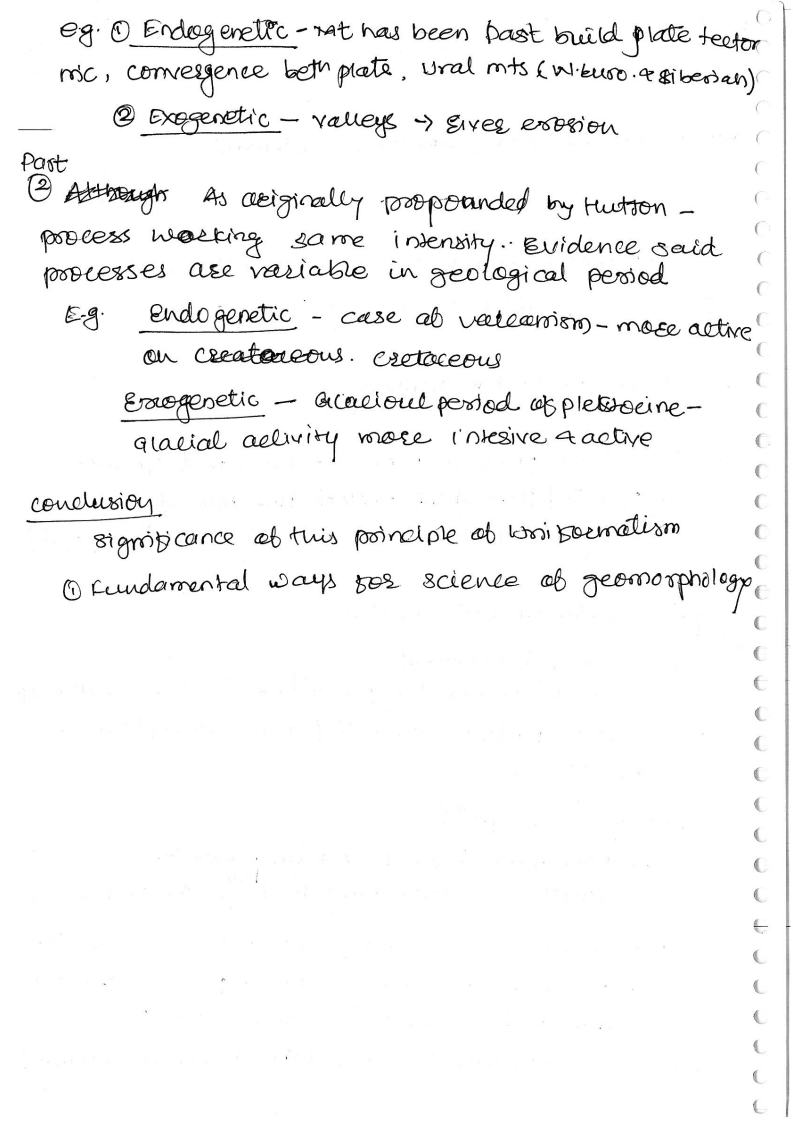 eg. ① Endogenetic - Mt has been past build plate tector
nic, convergence betn plate, Ural mts (W.Euro. & Siberian)
② Exogenetic - valleys → river erosion
Past
② Although As originally propounded by Hutton -
process working same intensity.. Evidence said
processes are variable in geological period
E.g. Endogenetic - case of volcanism - more active
on Creataceous. Cretaceous
Exogenetic - Glacioul period of pleistocine -
glacial activity more intesive & active
Conclusion
significance of this principle of Uniformatism
① Fundamental ways for science of geomorphology